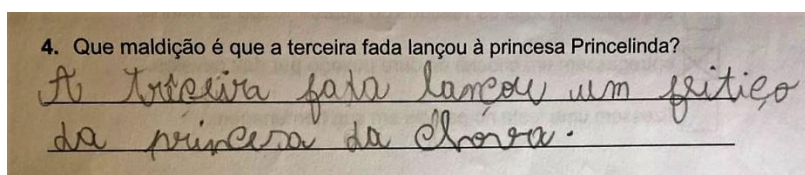 4. Que maldição é que a terceira fada lançou à princesa Princelinda?
A terceira fada lançou um feitiço
da princesa da Chorva.